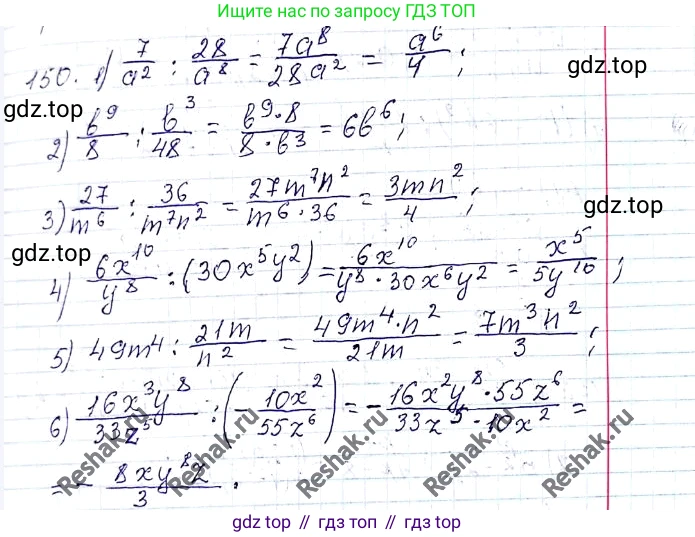 Ищите нас по запросу ГДЗ ТОП
150. 1) 7/a² : 28/a⁸ = 7a⁸/28a² = a⁶/4 ;
gdz.top
gdz.top
2) b⁹/8 : b³/48 = b⁹·8/8·b³ = 6b⁶ ;
3) 27/m⁶ : 36/m⁷n² = 27m⁷n²/m⁶·36 = 3mn²/4 ;
gdz.top
gdz.top
4) 6x¹⁰/y⁸ : (30x⁵y²) = 6x¹⁰/y⁸·30x⁶y² = x⁵/5y¹⁰ ;
5) 49m⁴ : 21m/n² = 49m⁴·n²/21m = 7m³n²/3 ;
6) 16x³y⁸/33z⁵ : (- 10x²/55z⁶) = - 16x²y⁸·55z⁶/33z⁵·10x² =
= - 8xy⁸z/3 .
Reshak.ru
Reshak.ru
Reshak.ru
Reshak.ru
gdz.top // гдз топ // gdz.top